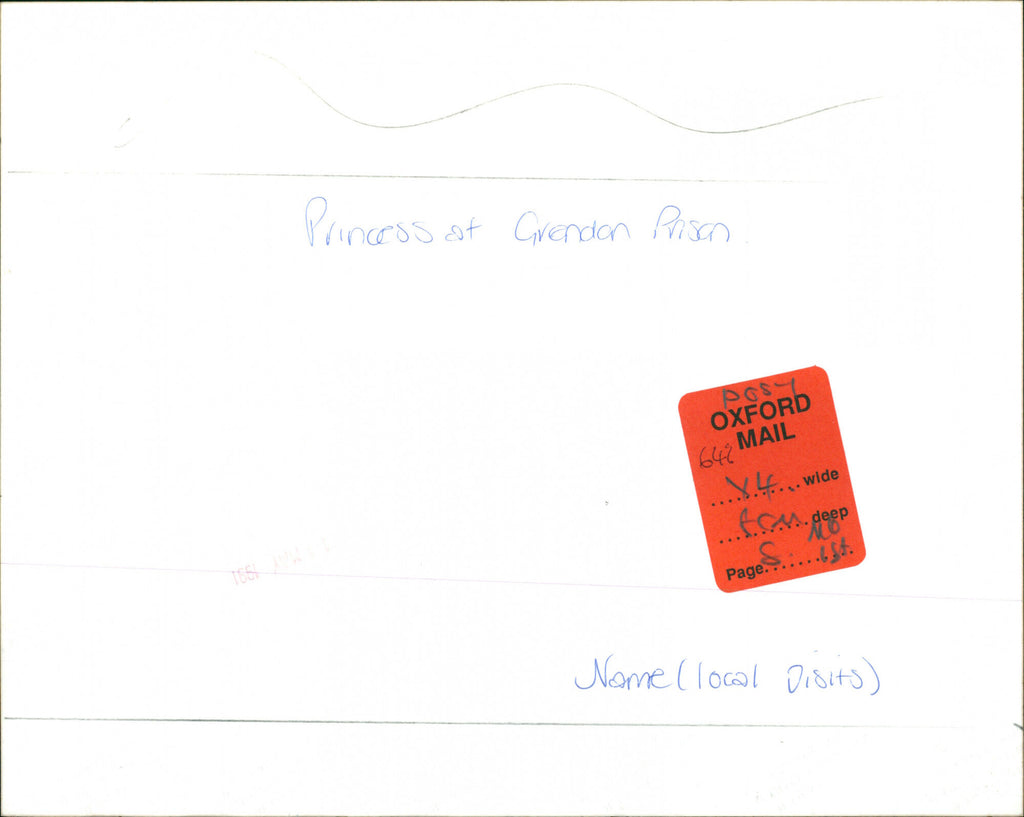 Princess at Grendon Prison.
POST
OXFORD
MAIL
64%
Y4 wide
fcm deep
Page 8. 1st.
Name (local Visits)
1991